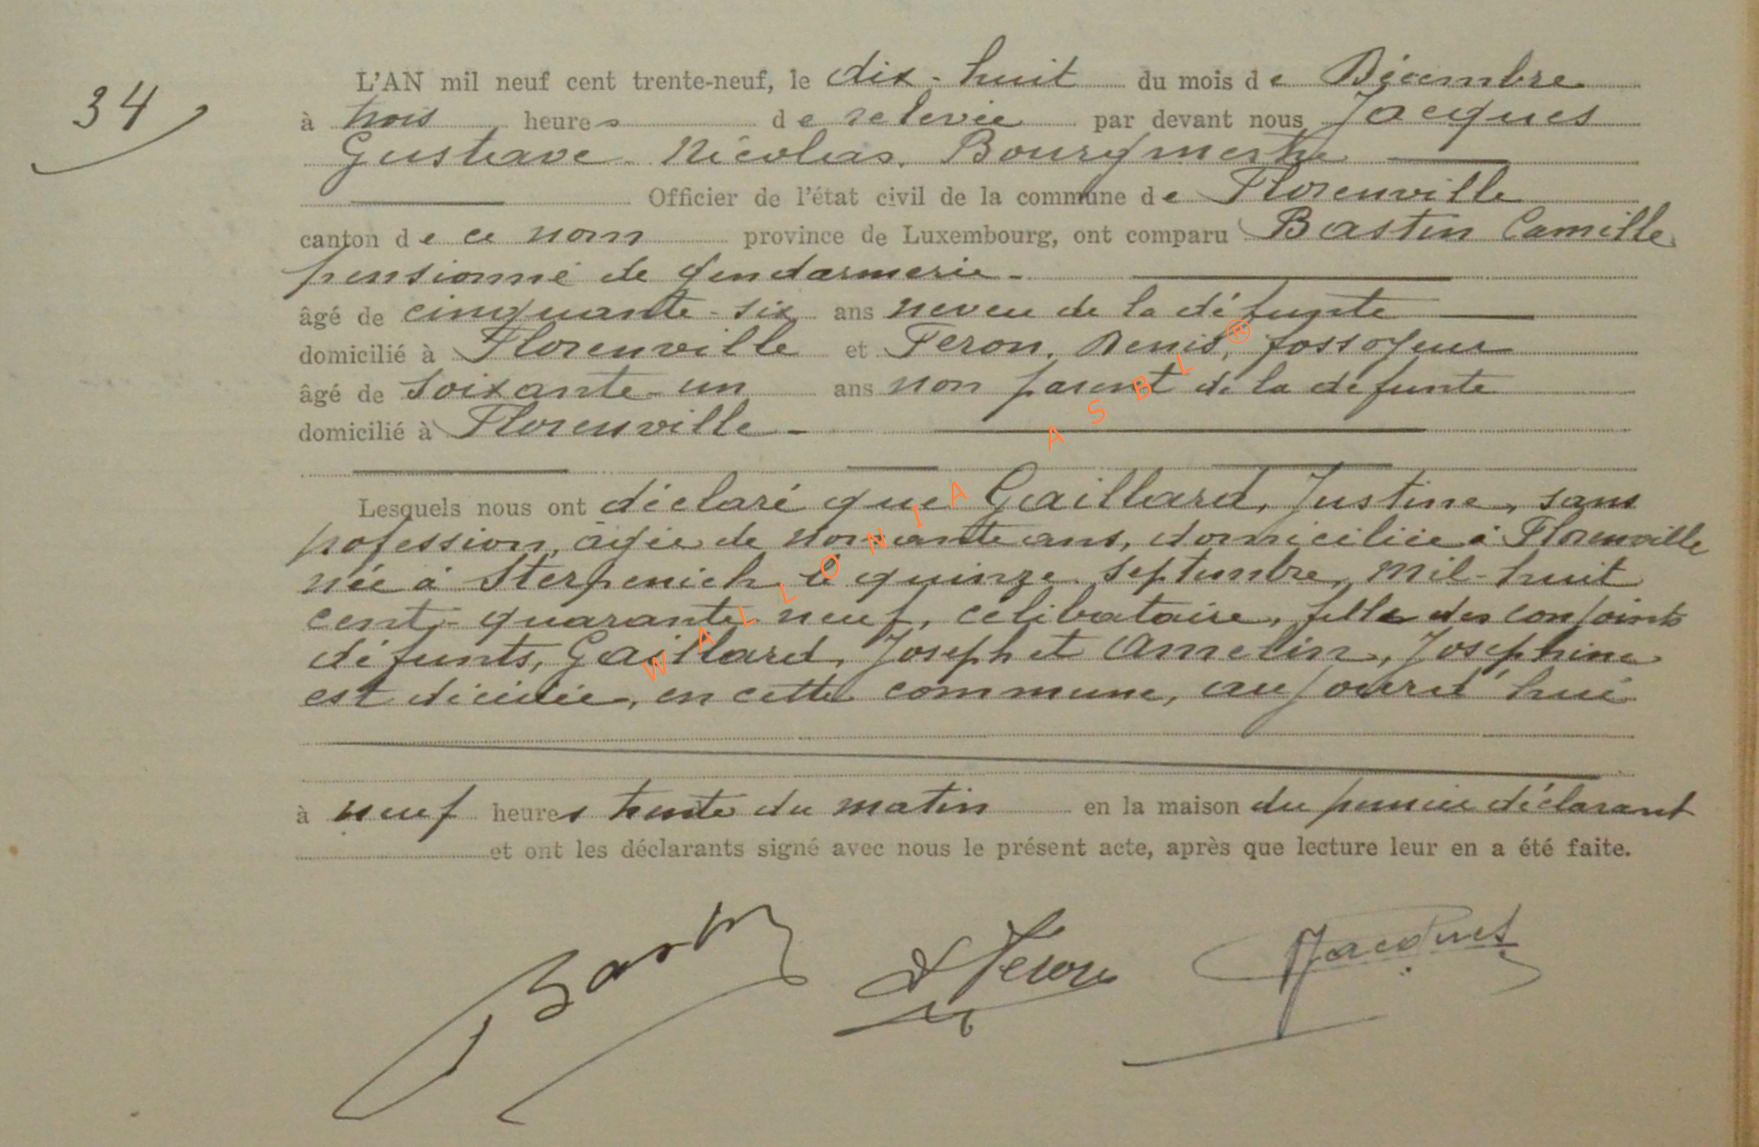 34
L'AN mil neuf cent trente-neuf, le dix-huit du mois de Décembre
à trois heures de relevée par devant nous Jacques
Gustave Nicolas, Bourgmestre
Officier de l'état civil de la commune de Florenville
canton de ce nom province de Luxembourg, ont comparu Bastin Camille
pensionné de gendarmerie -
âgé de cinquante-six ans neveu de la défunte
domicilié à Florenville et Feron, Denis, fossoyeur
âgé de soixante-un ans non parent de la défunte
domicilié à Florenville -
Lesquels nous ont déclaré que Gaillard, Justine, sans
profession, âgée de nonante ans, domiciliée à Florenville
née à Sterpenich le quinze septembre, mil-huit
cent-quarante neuf, célibataire, fille des conjoints
défunts, Gaillard, Joseph et Amelin, Josephine
est décédée, en cette commune, aujourd'hui
à neuf heures trente du matin en la maison du premier déclarant
et ont les déclarants signé avec nous le présent acte, après que lecture leur en a été faite.
Bastin D Feron GJacques
WALLONIA ASBL ®